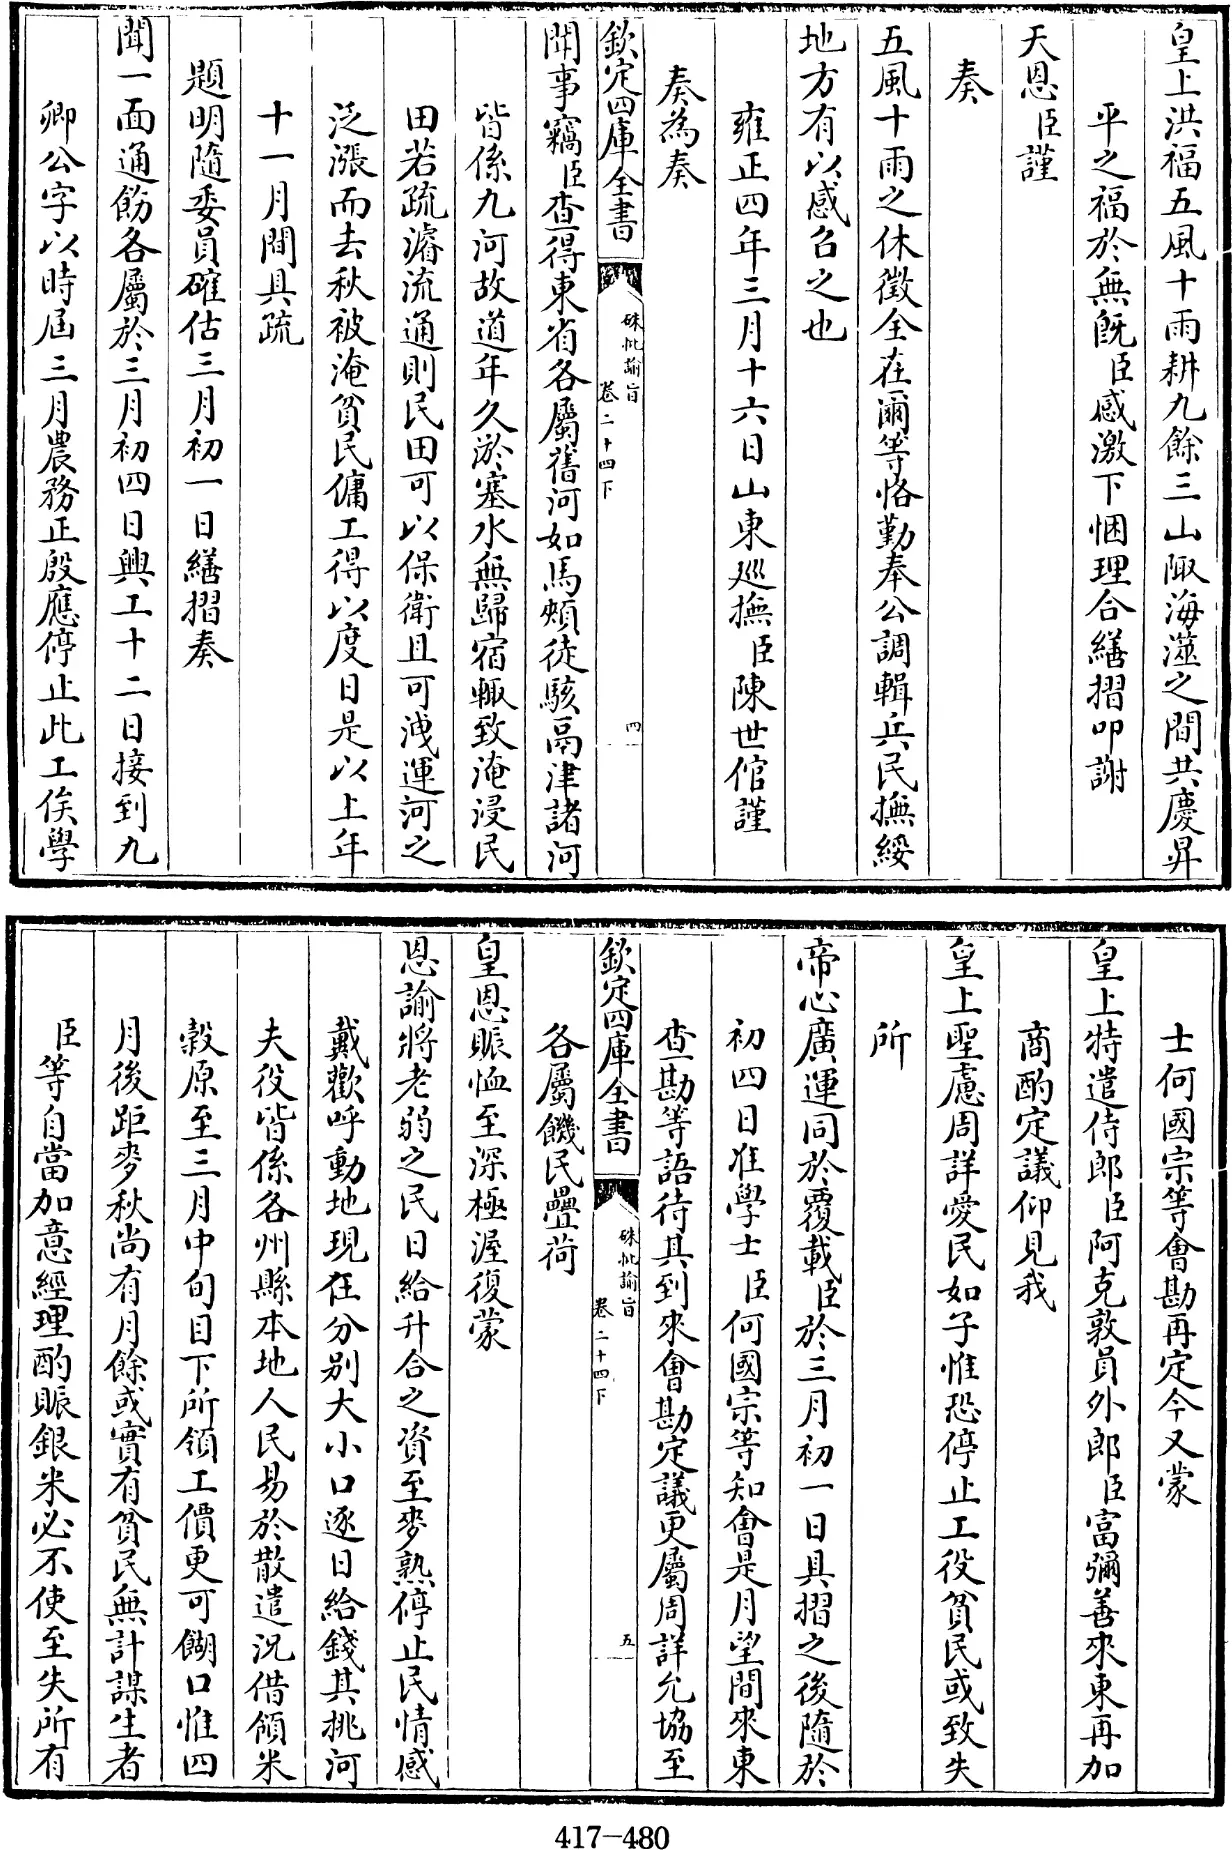 皇上洪福五風十雨耕九餘三山陬海澨之間共慶昇
平之福於無旣臣感激下悃理合繕摺叩謝
天恩臣謹
奏
五風十雨之休徵全在爾等恪勤奉公調輯兵民撫綏
地方有以感召之也
雍正四年三月十六日山東巡撫臣陳世倌謹
奏為奏
欽定四庫全書
硃批諭旨
卷二十四下
四
聞事竊臣查得東省各屬舊河如馬頰徒駭鬲津諸河
皆係九河故道年久淤塞水無歸宿輙致淹浸民
田若疏濬流通則民田可以保衛且可洩運河之
泛漲而去秋被淹貧民傭工得以度日是以上年
十一月間具疏
題明隨委員確估三月初一日繕摺奏
聞一面通飭各屬於三月初四日興工十二日接到九
卿公字以時届三月農務正殷應停止此工俟學
士何國宗等會勘再定今又蒙
皇上特遣侍郎臣阿克敦員外郎臣富彌善來東再加
商酌定議仰見我
皇上聖慮周詳愛民如子惟恐停止工役貧民或致失
所
帝心廣運同於覆載臣於三月初一日具摺之後隨於
初四日准學士臣何國宗等知會是月望間來東
查勘等語待其到來會勘定議更屬周詳允協至
欽定四庫全書
硃批諭旨
卷二十四下
五
各屬饑民疊荷
皇恩賑恤至深極渥復蒙
恩諭將老弱之民日給升合之資至麥熟停止民情感
戴歡呼動地現在分别大小口逐日給錢其挑河
夫役皆係各州縣本地人民易於散遣況借領米
穀原至三月中旬目下所領工價更可餬口惟四
月後距麥秋尚有月餘或實有貧民無計謀生者
臣等自當加意經理酌賑銀米必不使至失所有
417-480